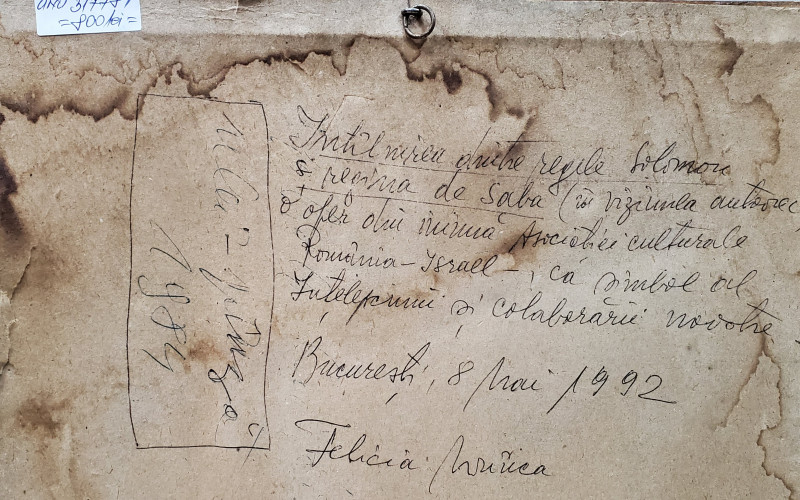 =800 lei=
Întîlnirea dintre regele Solomon
și regina de Saba (în viziunea autoarei,
o ofer din inimă Asociației culturale
România-Israel-, ca simbol al
Înțelepciunii și colaborării novotre
București, 8 Mai 1992
Felicia
1984